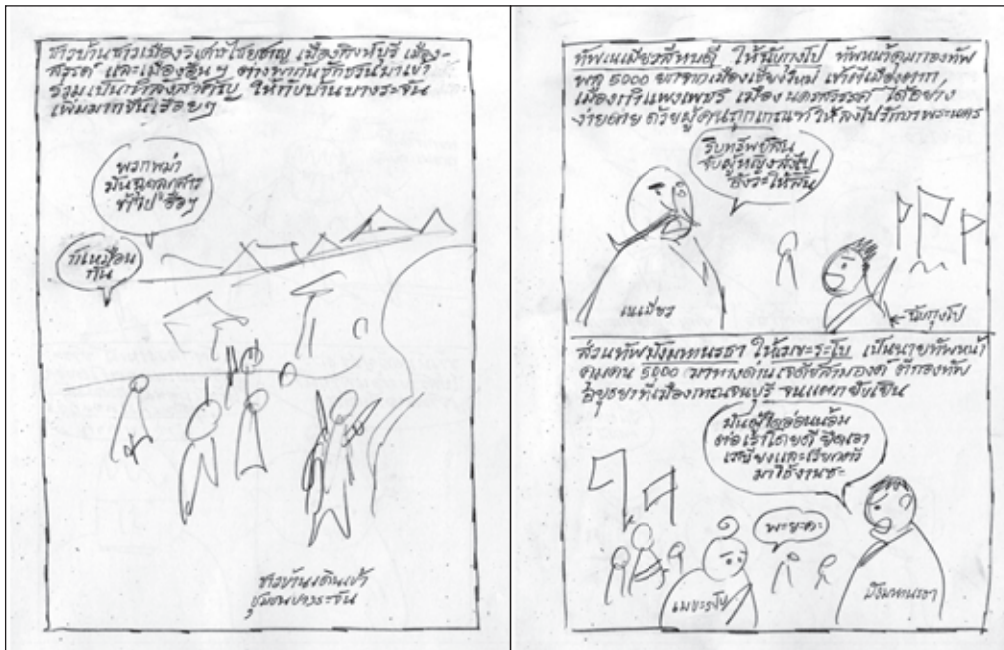 ชาวบ้านชาวเมืองวิเศษไชยชาญ เมืองสิงห์บุรี เมือง-
สรรค์ และเมืองอื่นๆ ต่างพากันชักชวนมาเข้า
ร่วมเป็นกำลังสำคัญ ให้กับบ้านบางระจัน
เพิ่มมากขึ้นเรื่อยๆ
พวกพม่า
มันฉุดลูกสาว
ข้าไป ฮือๆ
ก็เหมือน
กัน
ชาวบ้านเดินเข้า
ชุมชนบางระจัน
ทัพเนเมียวสีหบดี ให้นับกุงโบ ทัพหน้าคุมกองทัพ
พล 5000 ยกจากเมืองเชียงใหม่ เข้าตีเมืองตาก
เมืองกำแพงเพชร เมืองนครสวรรค์ ได้อย่าง
ง่ายดาย ด้วยผู้คนถูกเกณฑ์ให้ลงไปรักษาพระนคร
ริบทรัพย์สิน
จับผู้หญิงส่งไป
อังวะให้สิ้น
เนเมียว
ฉับกุงโบ
ส่วนทัพมังมหานรธา ให้เมฆะระโบ เป็นนายทัพหน้า
คุมคน 5000 มาทางด่านเจดีย์สามองค์ ตีกองทัพ
อยุธยาที่เมืองกาญจนบุรี จนแตกยับเยิน
มันผู้ใดอ่อนน้อม
ต่อเราโดยดี ยึดเอา
เสบียงและเรียกตัว
มาใช้งานซะ
พะยะค่ะ
เมฆะระโบ
มังมหานรธา